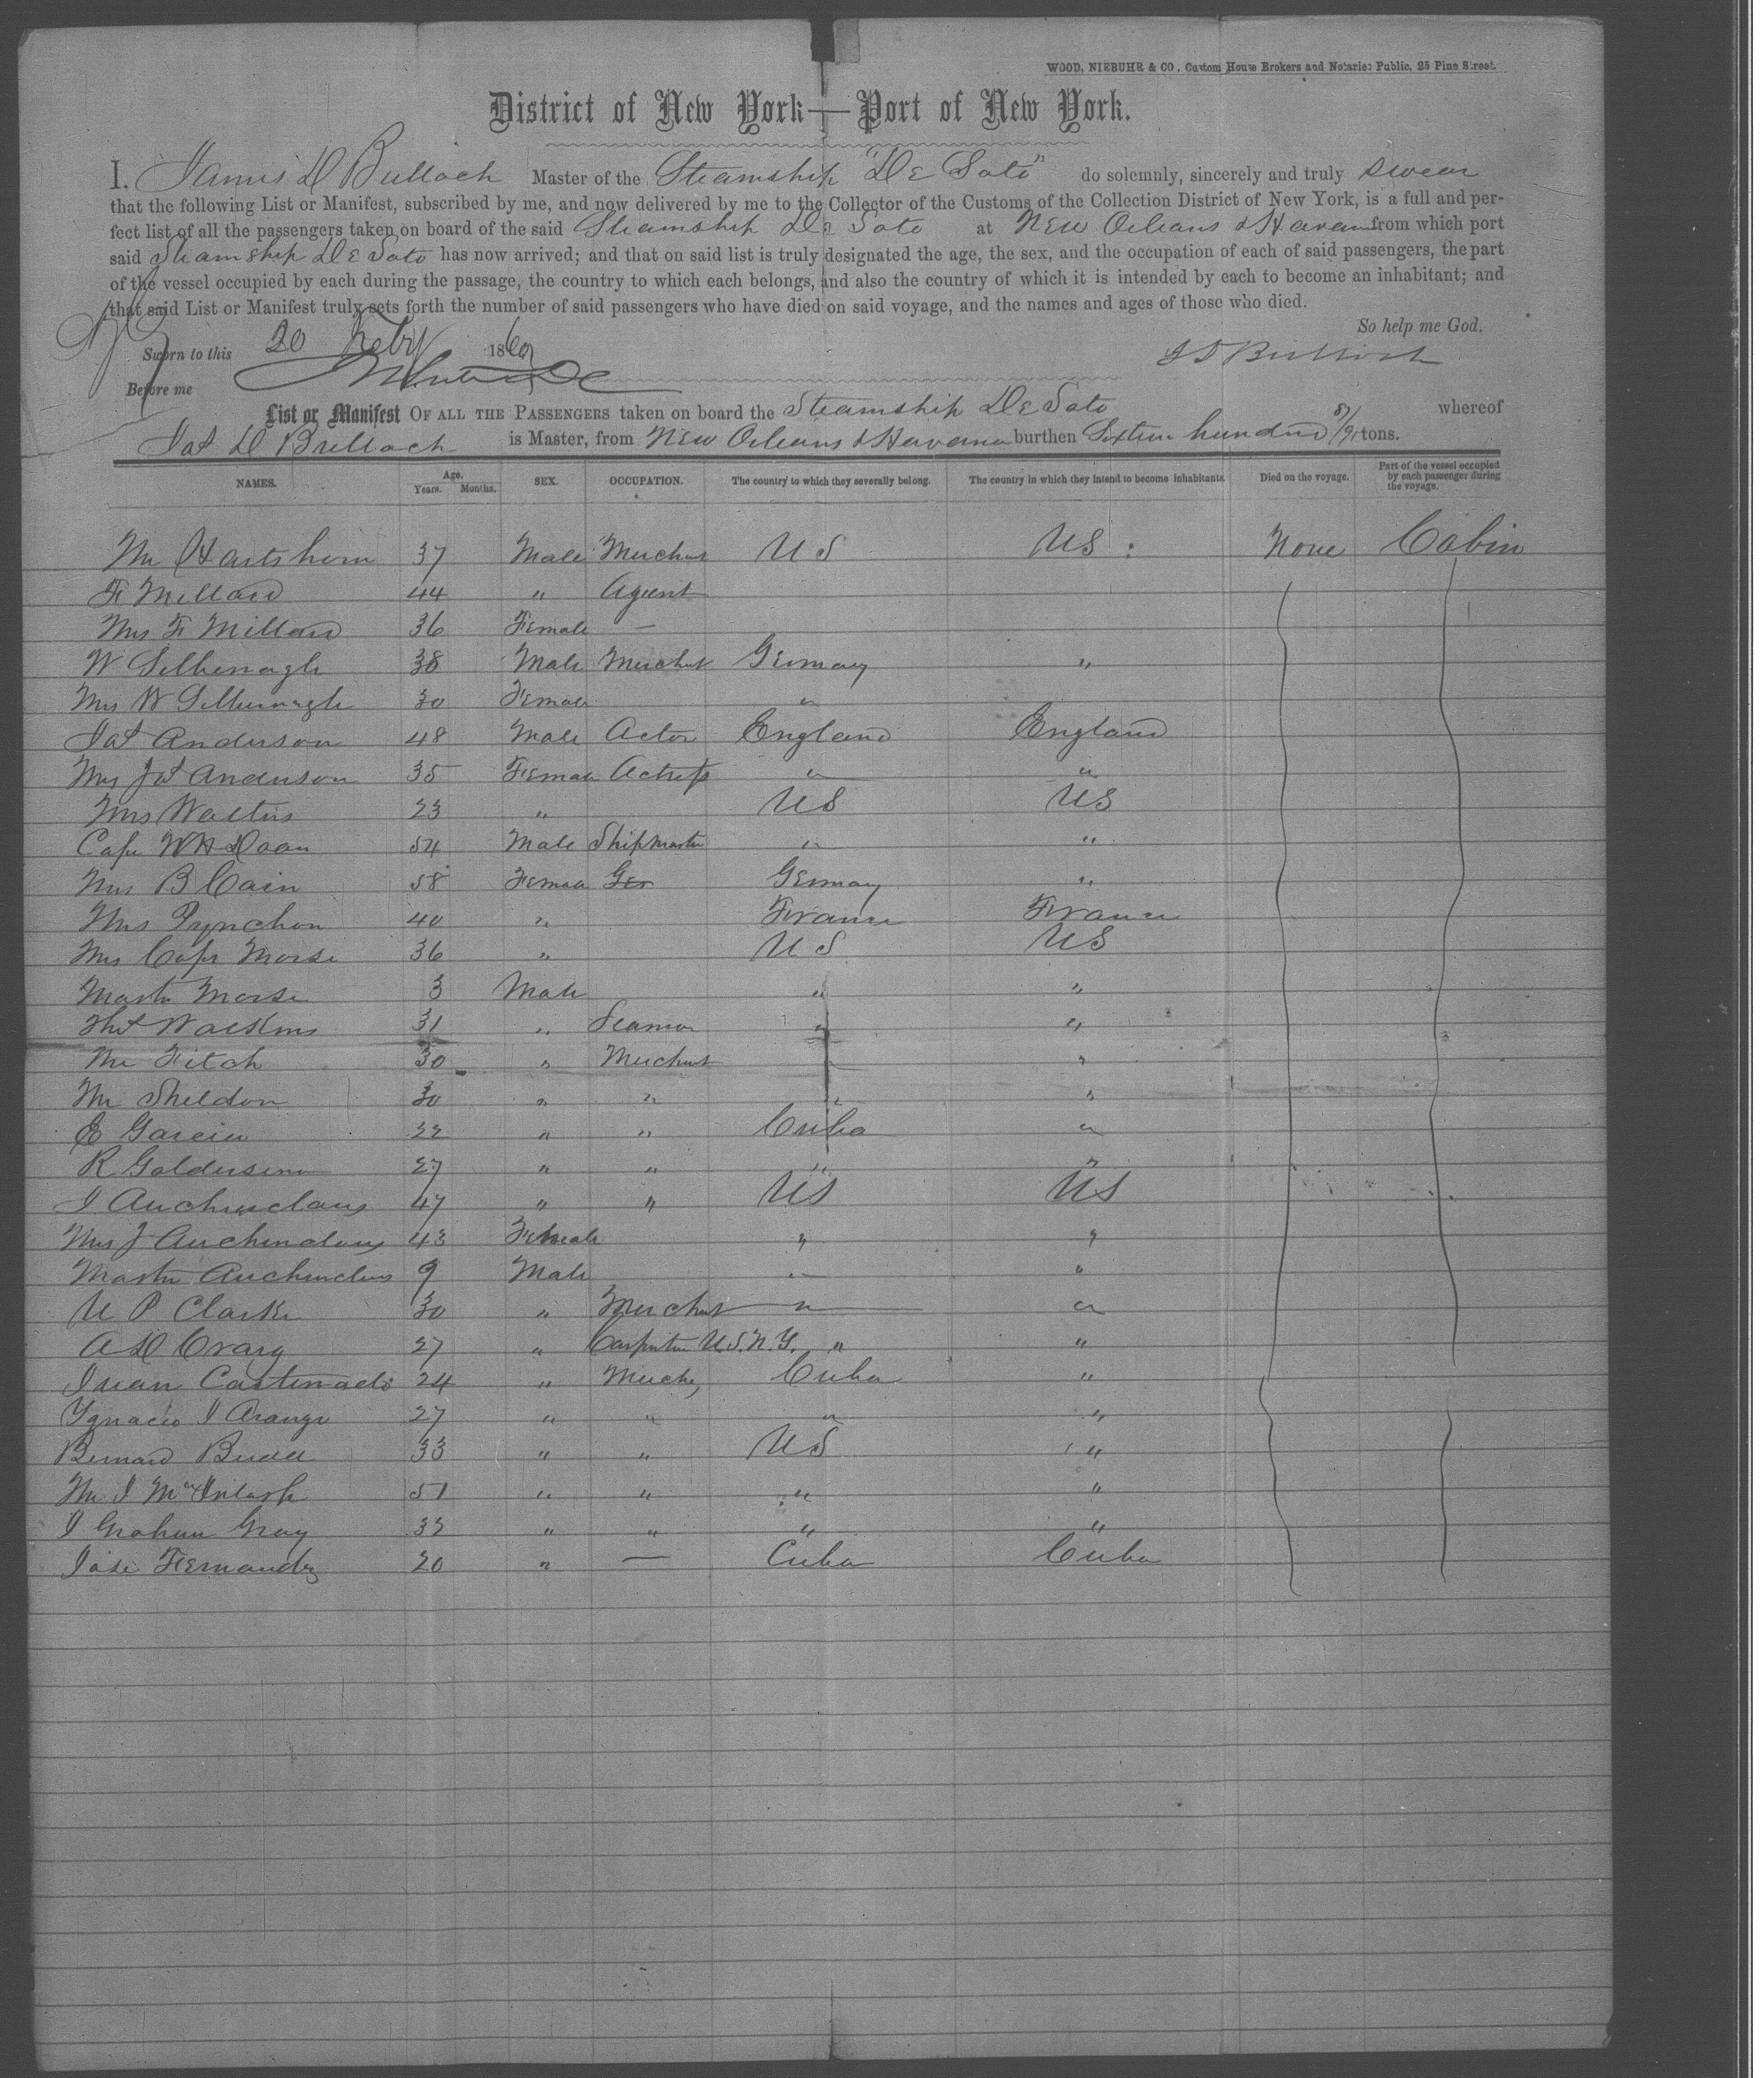 WOOD, NIEBUHR & CO, Custom House Brokers and Notaries Public, 25 Pine Street.
District of New York — Port of New York.
I, James D Bulloch Master of the Steamship "De Soto" do solemnly, sincerely and truly swear
that the following List or Manifest, subscribed by me, and now delivered by me to the Collector of the Customs of the Collection District of New York, is a full and per-
fect list of all the passengers taken on board of the said Steamship De Soto at New Orleans & Havana from which port
said Steamship De Soto has now arrived; and that on said list is truly designated the age, the sex, and the occupation of each of said passengers, the part
of the vessel occupied by each during the passage, the country to which each belongs, and also the country of which it is intended by each to become an inhabitant; and
that said List or Manifest truly sets forth the number of said passengers who have died on said voyage, and the names and ages of those who died.
So help me God.
Sworn to this 20 Feby 1860 J D Bulloch
Before me
List or Manifest OF ALL THE PASSENGERS taken on board the Steamship De Soto whereof
Jas D Bulloch is Master, from New Orleans & Havana burthen Sixteen hundred tons.
NAMES. Age. Years. Months. SEX. OCCUPATION. The country to which they severally belong. The country in which they intend to become inhabitants Died on the voyage. Part of the vessel occupied by each passenger during the voyage.
Mr Hartshorn 37 Male Merchant U S US : None Cabin
F Millard 44 " Agent
Mrs F Millard 36 Female —
W 38 Male Merchant Germany "
Mrs W 30 Female "
Jas Anderson 48 Male Actor England England
Mrs Jas Anderson 35 Female Actress " "
Mrs Walters 23 " US US
Capt W H Doan 54 Male Shipmaster " "
Mrs B Cain 58 Female Ger Germany "
Mrs Pynchon 40 " France France
Mrs Capt Morse 36 " U S US
Master Morse 3 Male " "
Thos Watkins 31 " Seaman " "
Mr Fitch 30 " Merchant " "
Mr Sheldon 30 " " " "
E Garcia 22 " " Cuba "
R 27 " " " "
J Auchincloss 47 " " US US
Mrs J Auchincloss 43 Female " "
Master Auchincloss 9 Male " "
U P Clarke 30 " Merchant " "
A D Crary 27 " Carpenter U.S.N.Y. " "
Juan Castenado 24 " Merch Cuba "
Ygnacio J Arango 27 " " " "
Bernard Budd 33 " " US "
Mr J McIntosh 51 " " " "
J Graham Gray 32 " " " "
Jose Fernandez 20 " — Cuba Cuba